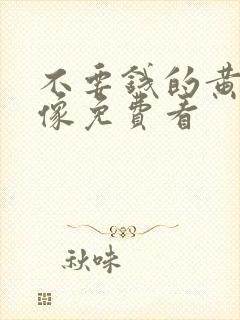 不要錢的黃
像免費看
秋味